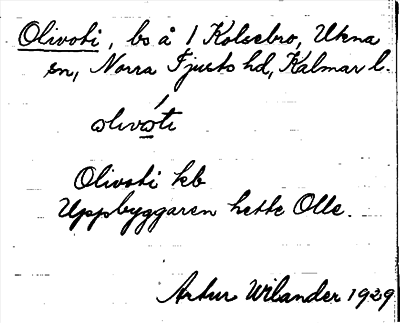 Olivoti, bs å 1 Kolsebro, Ukna
sn, Norra Tjusts hd, Kalmar l.
olivóti
Olivoti kb
Uppbyggaren hette Olle.
Artur Wilander 1929